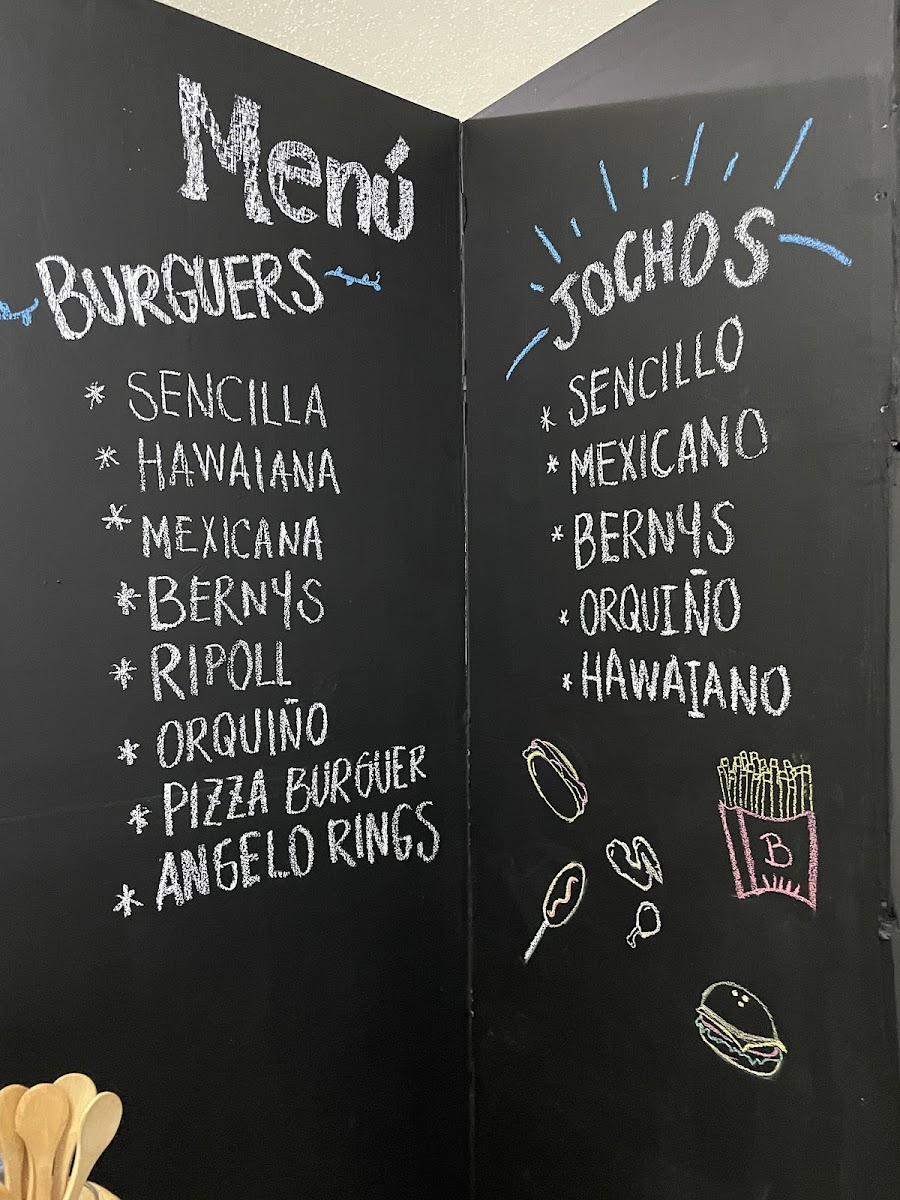 Menú
BURGUERS
* SENCILLA
* HAWAIANA
* MEXICANA
* BERNYS
* RIPOLL
* ORQUIÑO
* PIZZA BURGUER
* ANGELO RINGS
JOCHOS
* SENCILLO
* MEXICANO
* BERNYS
* ORQUIÑO
* HAWAIANO
B